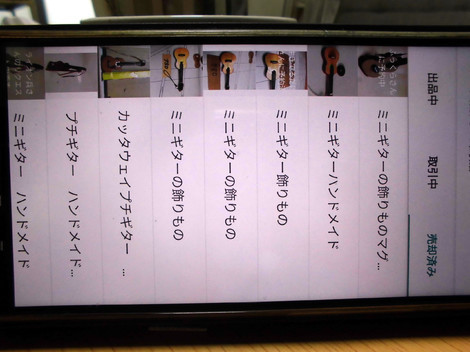 出品中 取引中 売却済み
ミニギターの飾りものマグ...
ミニギターハンドメイド
ミニギター飾りもの
ミニギターの飾りもの
ミニギターの飾りもの
カッタウェイプチギター ...
プチギター ハンドメイド...
ミニギター ハンドメイド